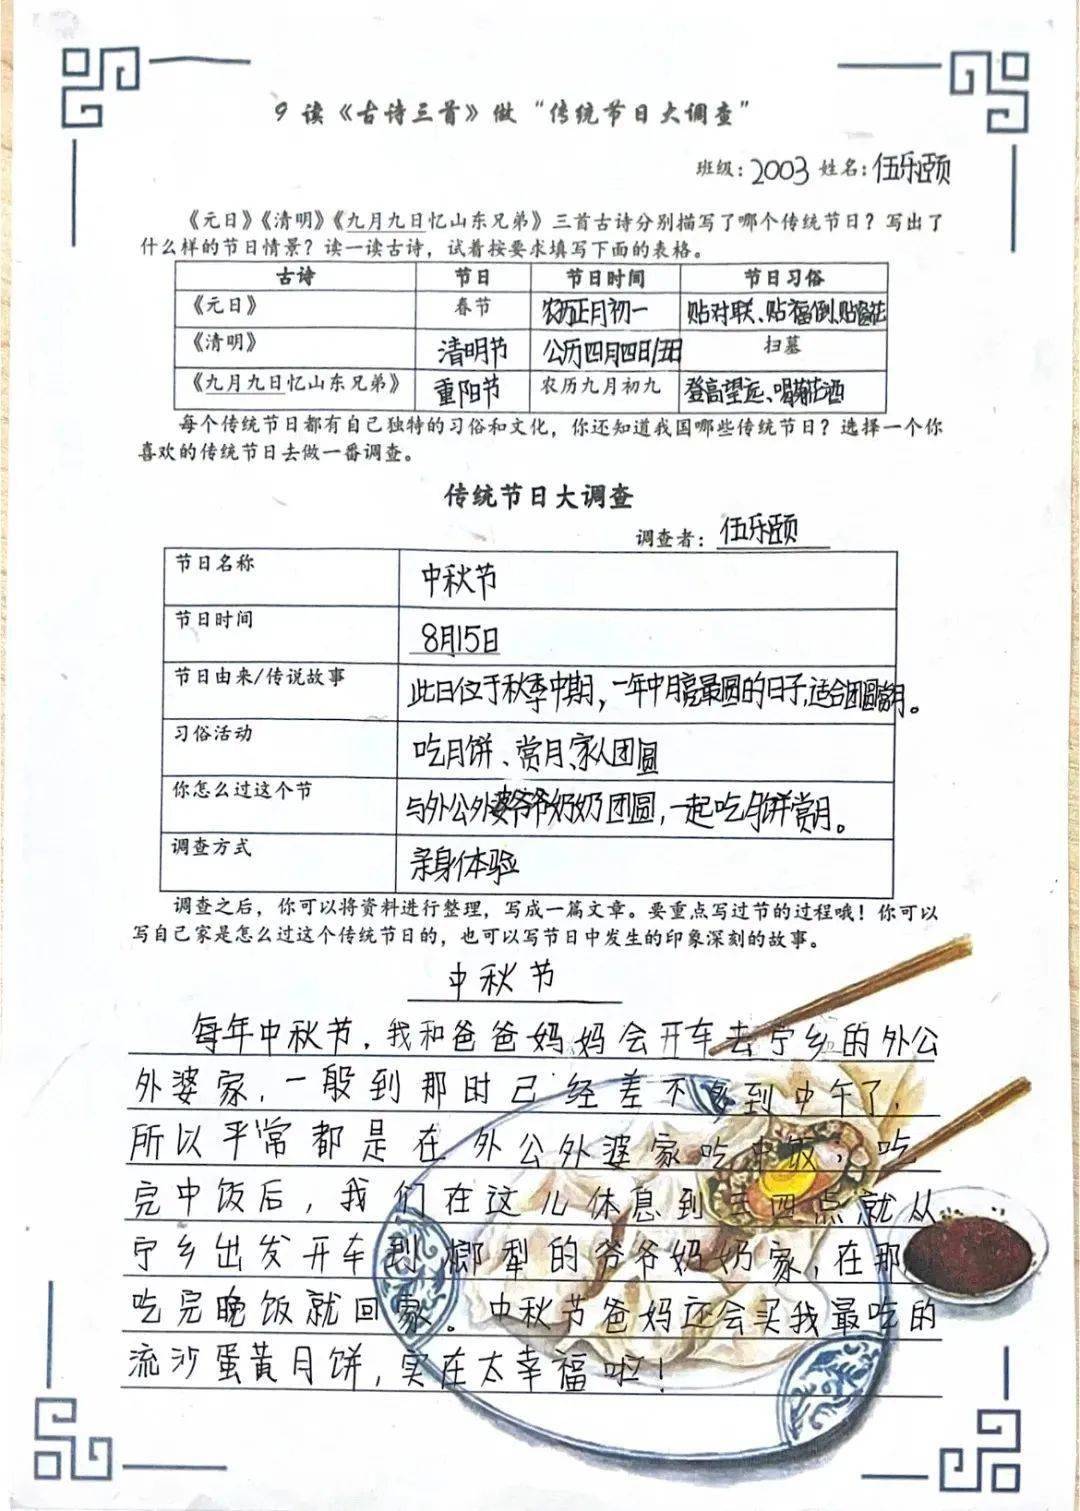 9 读《古诗三首》做“传统节日大调查”
班级：2003 姓名：伍乐颐
《元日》《清明》《九月九日忆山东兄弟》三首古诗分别描写了哪个传统节日？写出了
什么样的节日情景？读一读古诗，试着按要求填写下面的表格。
古诗 节日 节日时间 节日习俗
《元日》 春节 农历正月初一 贴对联、贴福倒、贴窗花
《清明》 清明节 公历四月四日/五日 扫墓
《九月九日忆山东兄弟》 重阳节 农历九月初九 登高望远、喝菊花酒
每个传统节日都有自己独特的习俗和文化，你还知道我国哪些传统节日？选择一个你
喜欢的传统节日去做一番调查。
传统节日大调查
调查者：伍乐颐
节日名称 中秋节
节日时间 8月15日
节日由来/传说故事 此日位于秋季中期，一年中月亮最圆的日子，适合团圆赏月。
习俗活动 吃月饼、赏月、家人团圆
你怎么过这个节 与外公外婆爷爷奶奶团圆，一起吃月饼赏月。
调查方式 亲身体验
调查之后，你可以将资料进行整理，写成一篇文章。要重点写过节的过程哦！你可以
写自己家是怎么过这个传统节日的，也可以写节日中发生的印象深刻的故事。
中秋节
每年中秋节，我和爸爸妈妈会开车去宁乡的外公
外婆家，一般到那时已经差不多到中午了，
所以平常都是在外公外婆家吃中饭，吃
完中饭后，我们在这儿休息到三四点就从
宁乡出发开车到榔犁的爷爷奶奶家，在那
吃完晚饭就回家。中秋节爸妈还会买我最吃的
流沙蛋黄月饼，实在太幸福啦！